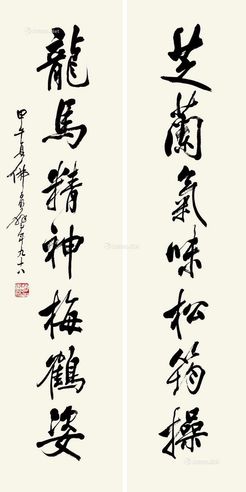 芝蘭氣味松筠操
龍馬精神梅鶴姿
甲午夏佛
年九十八